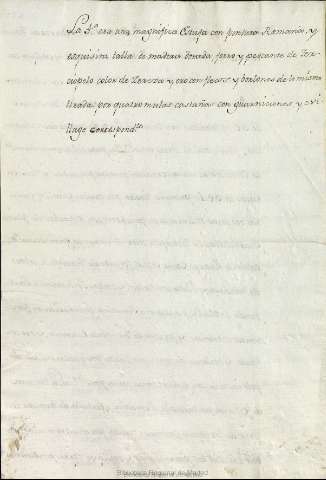 La 3.ª era una magnifica Estufa con pintura Romana, y
esquisita talla de madera dorada, forro y pescante de Ter
ciopelo color de Cereza y oro con flecos y borlones de lo mismo
tirada por quatro mulas castañas con guarniciones y
llage correspond.te
Biblioteca Regional de Madrid